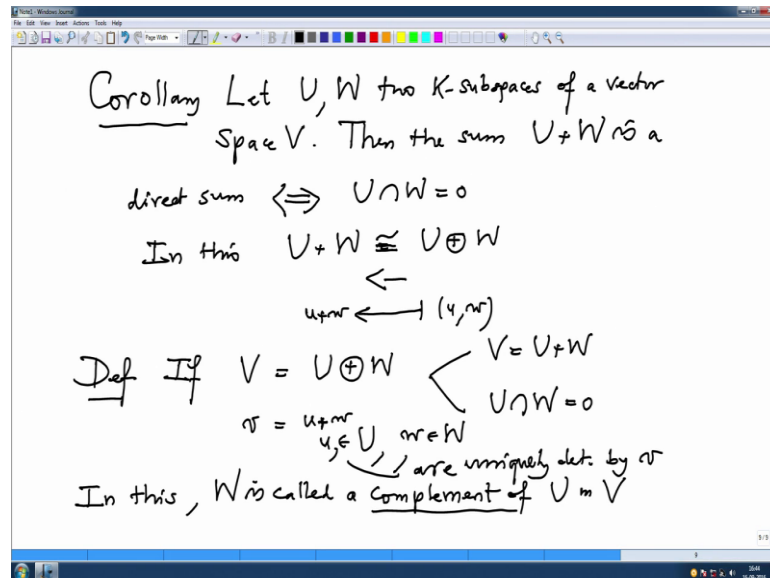 Note1 - Windows Journal
File Edit View Insert Actions Tools Help
Page Width
Corollary Let U, W two K-subspaces of a vector
space V. Then the sum U + W is a
direct sum ⟺ U ∩ W = 0
In this U + W ≅ U ⊕ W
←
u+w ⟵| (u, w)
Def If V = U ⊕ W < V = U + W
U ∩ W = 0
v = u+w
u, ∈ U, w ∈ W
are uniquely det. by v
In this, W is called a complement of U in V
9/9
9
16:44